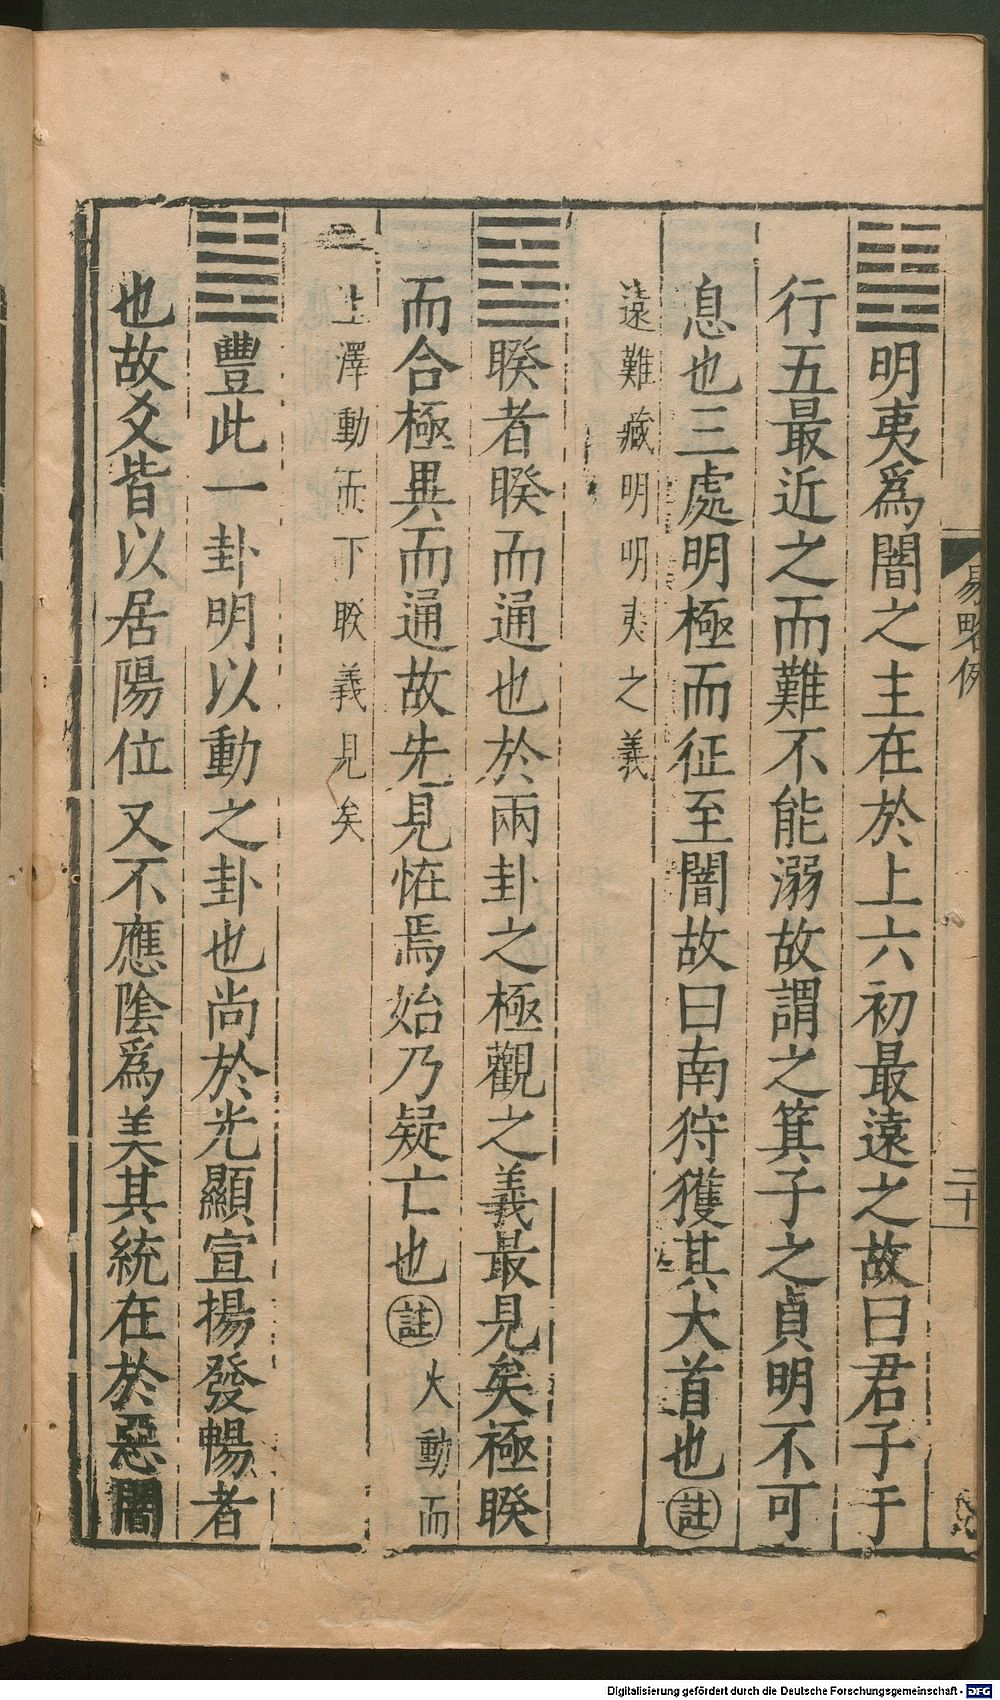 ䷣明夷爲闇之主在於上六初最遠之故曰君子于
行五最近之而難不能溺故謂之箕子之貞明不可
息也三處明極而征至闇故曰南狩獲其大首也註
遠難藏明明夷之義
䷥睽者睽而通也於兩卦之極觀之義最見矣極睽
而合極異而通故先見恠焉始乃疑亡也註火動而
上澤動而下睽義見矣
䷶豐此一卦明以動之卦也尚於光顯宣揚發暢者
也故爻皆以居陽位又不應陰爲美其統在於惡闇
易略例
二十
Digitalisierung gefördert durch die Deutsche Forschungsgemeinschaft - DFG